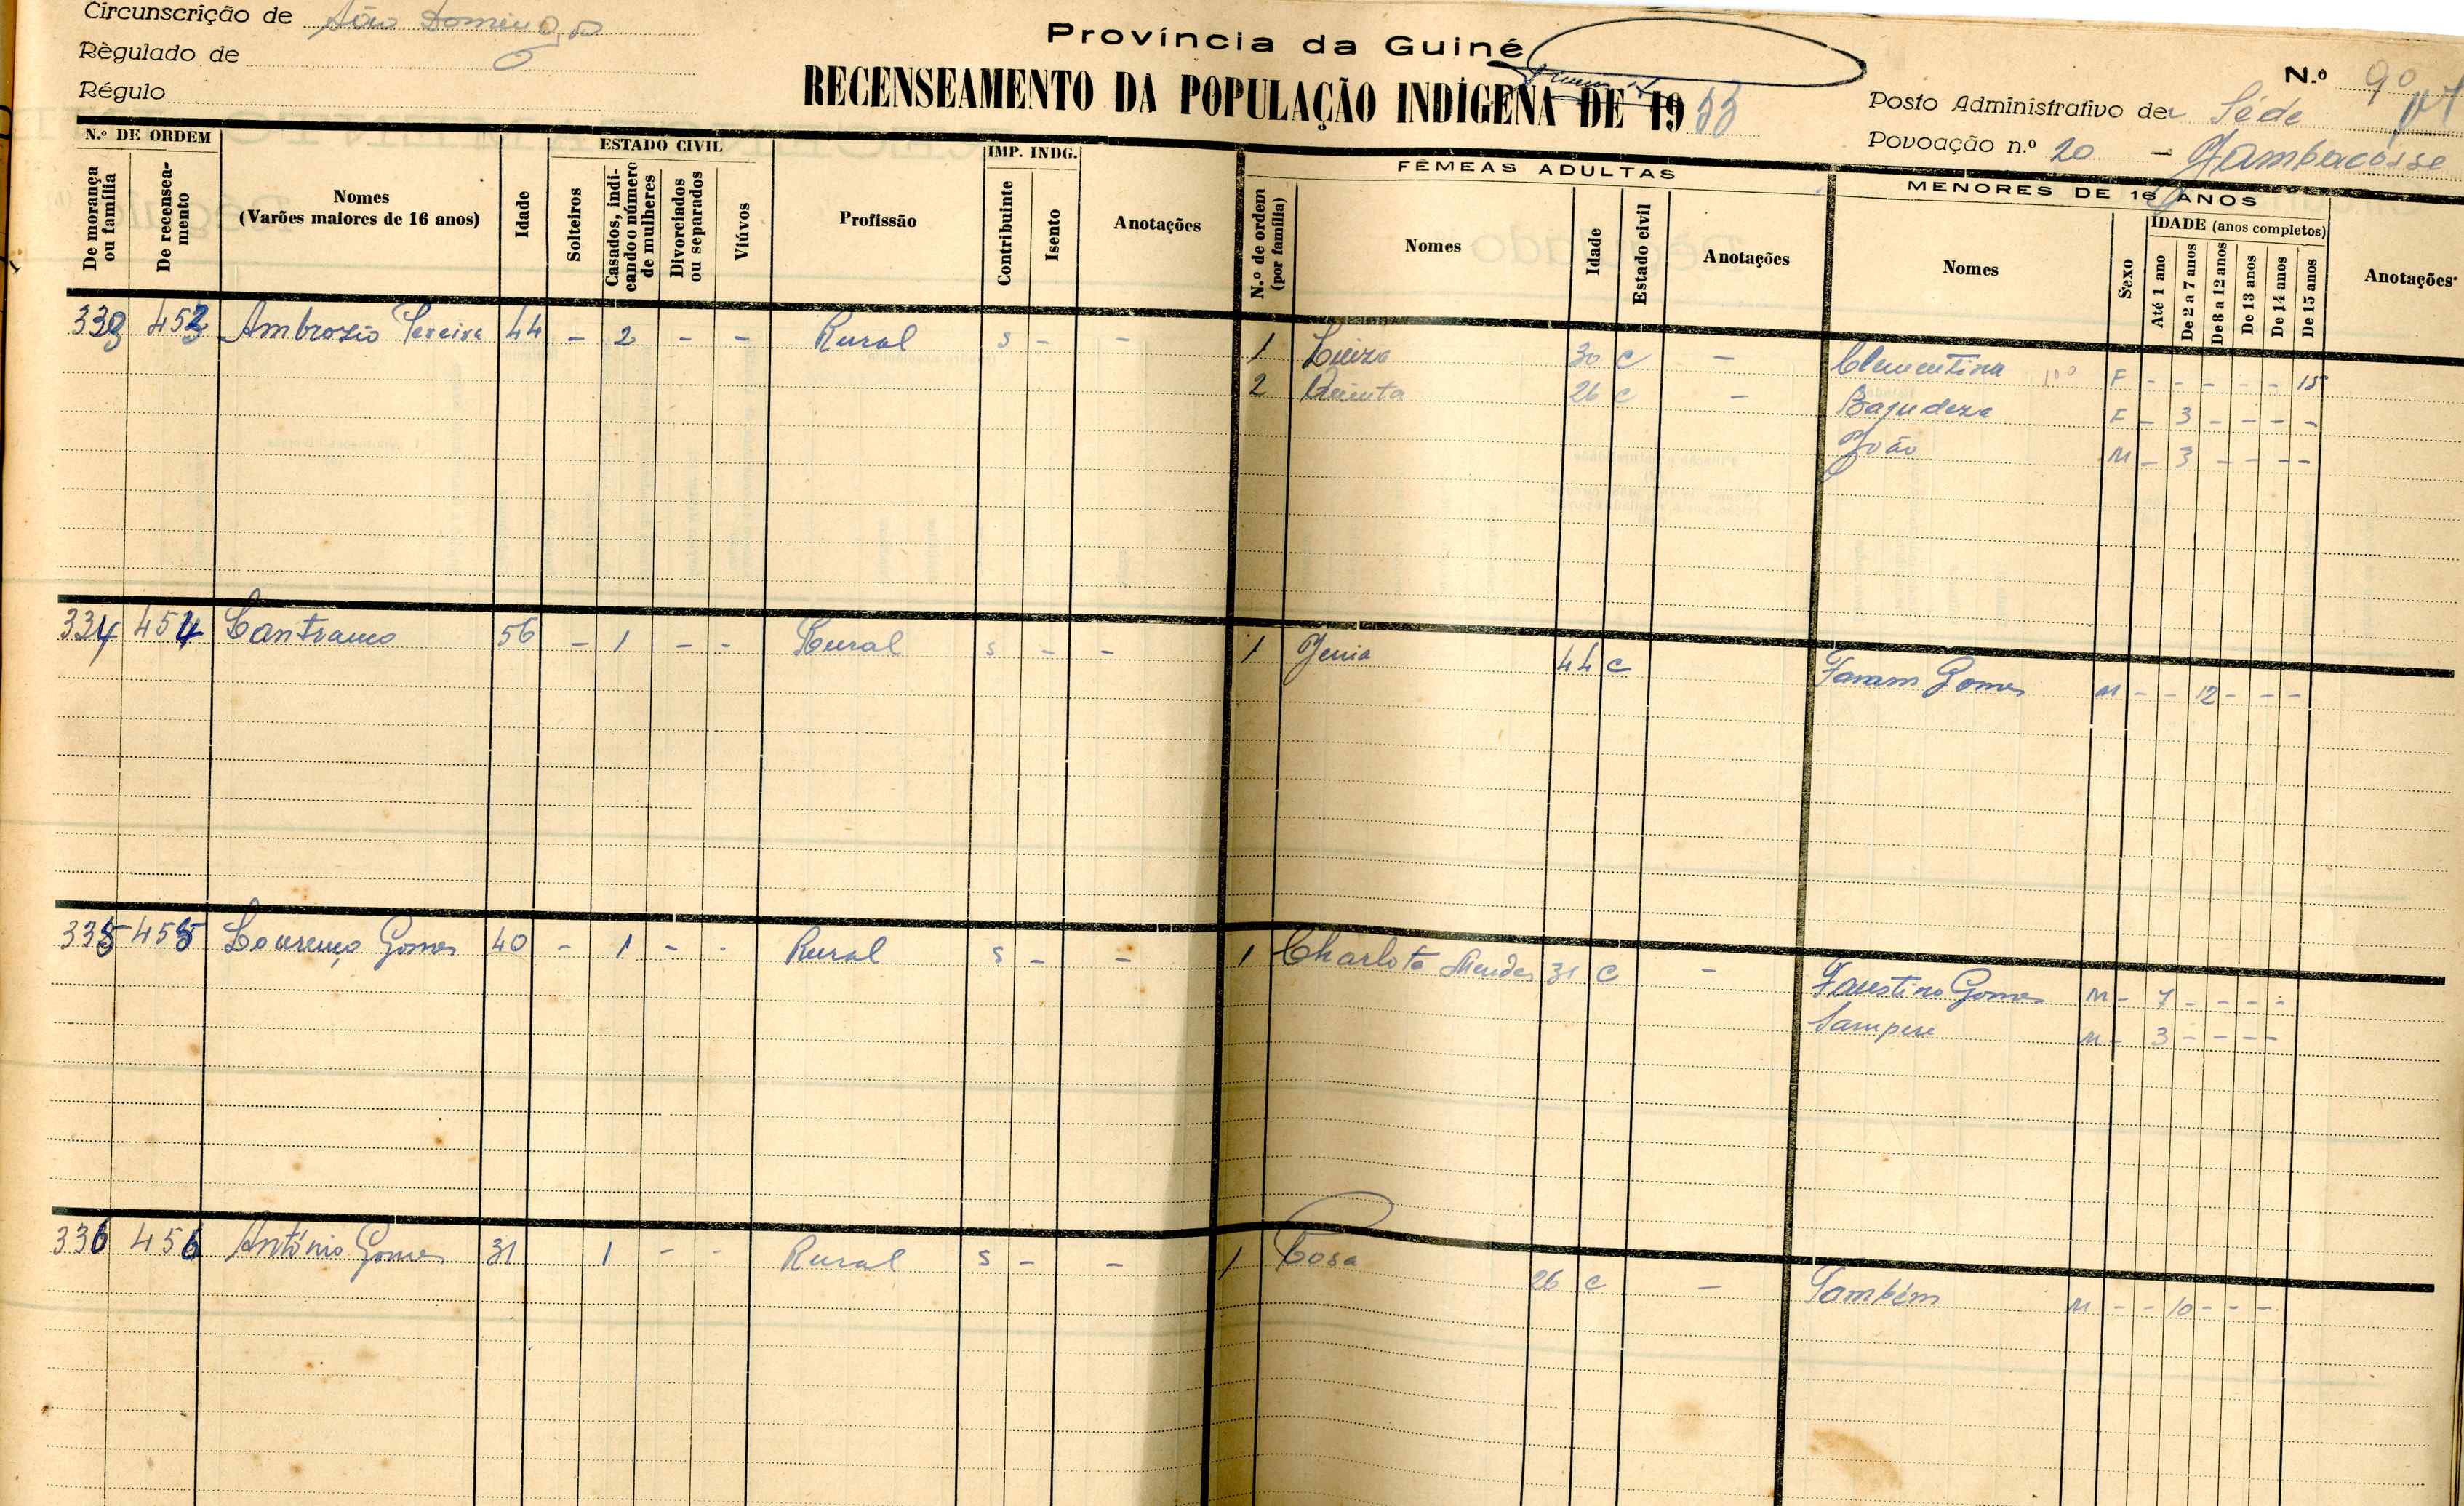 Circunscrição de São Domingos
Règulado de
Régulo
Província da Guiné
RECENSEAMENTO DA POPULAÇÃO INDÍGENA DE 1953
N.º 90
Posto Administrativo de Séde
Povoação n.º 20 - Jambacósse
N.º DE ORDEM
De morança ou família
De recenseamento
Nomes
(Varões maiores de 16 anos)
Idade
ESTADO CIVIL
Solteiros
Casados, indicando o número de mulheres
Divorciados ou separados
Viúvos
Profissão
IMP. INDG.
Contribuinte
Isento
Anotações
FÊMEAS ADULTAS
N.º de ordem (por família)
Nomes
Idade
Estado civil
Anotações
MENORES DE 16 ANOS
Nomes
Sexo
IDADE (anos completos)
Até 1 ano
De 2 a 7 anos
De 8 a 12 anos
De 13 anos
De 14 anos
De 15 anos
Anotações
333 453 Ambrozio Pereira 44 - 2 - - Rural s - - 1 Luiza 30 c - Clementina F - - - - - 15
2 Quinta 26 c - Bajudeza F - 3 - - - -
João M - 3 - - - -
334 454 56 - 1 - - Rural s - - 1 44 c Gomes M - - 12 - - -
335 455 Lourenço Gomes 40 - 1 - - Rural s - - 1 Charlota Mendes 31 c - Faustino Gomes M - 7 - - - -
Sampere M - 3 - - - -
336 456 António Gomes 31 1 - - Rural s - - 1 Rosa 26 c - Também M - - 10 - - -